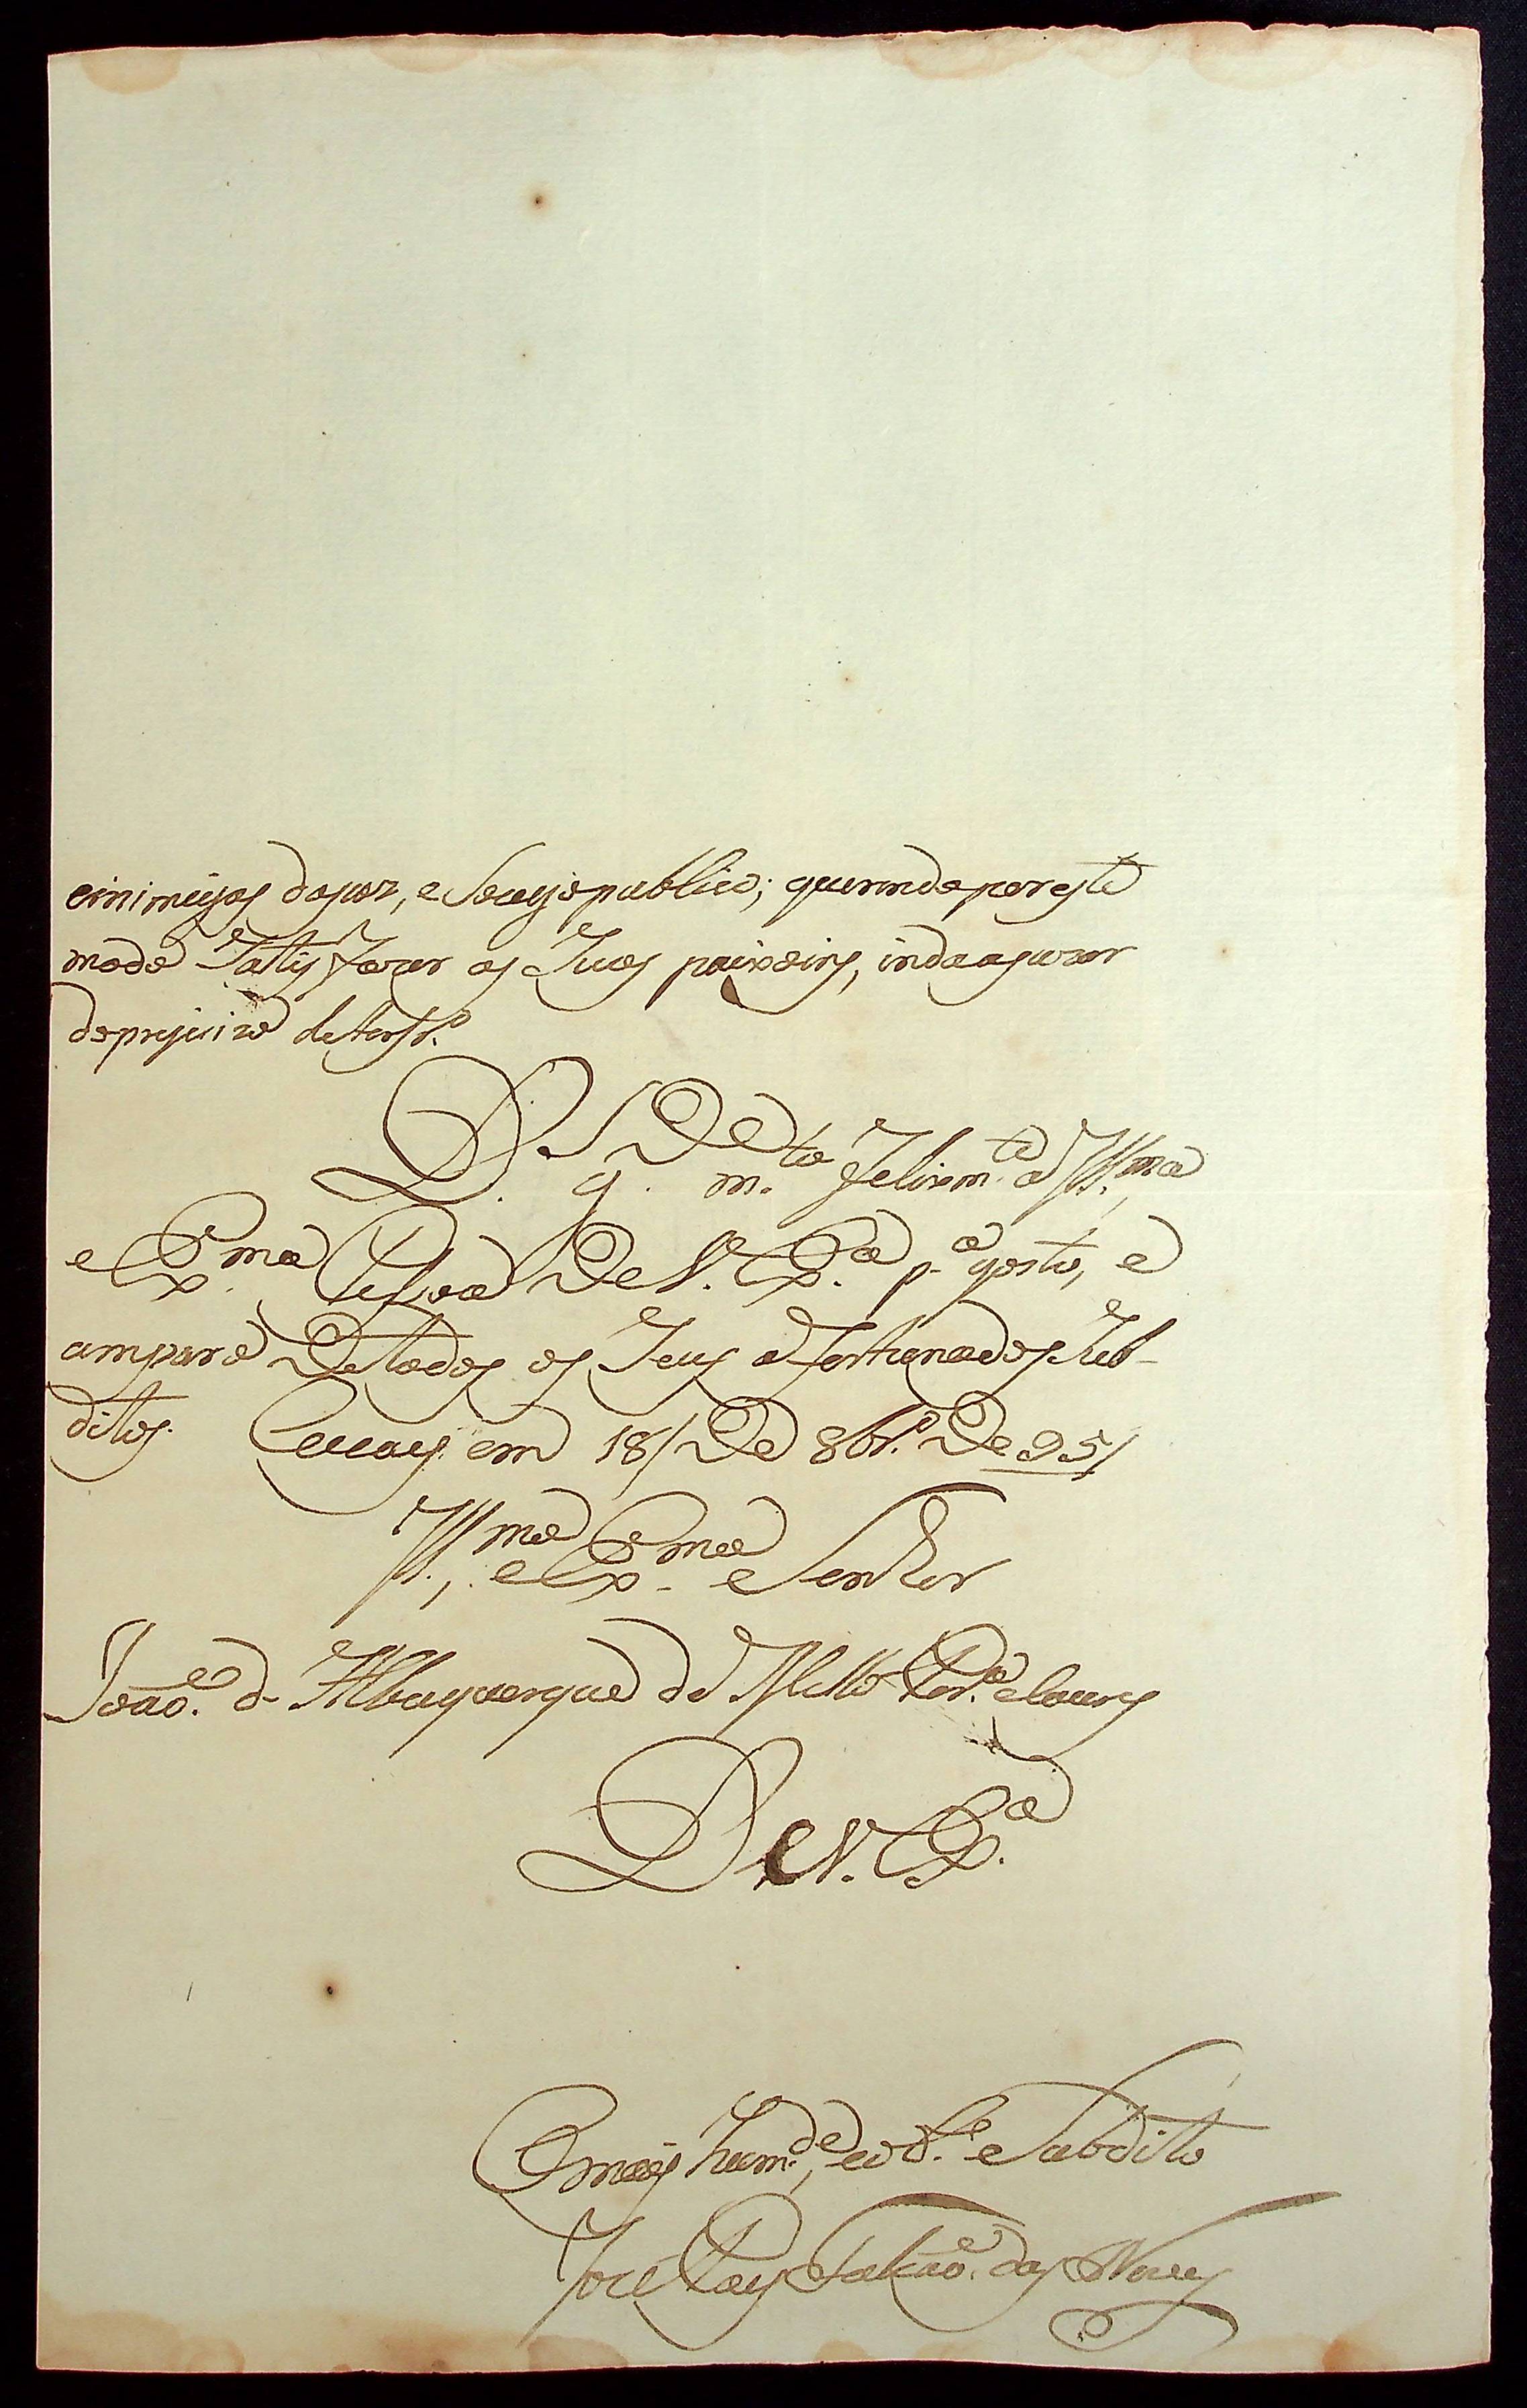 einimigos dapaz, e Socego publico; querendo por este
modo Satisfazer as Suas paixoins, inda apezar
do prejuizo de terſr.º
D.s g.e m.to felizm.te a Ill.ma
e Ex.ma Peſsoa De V. Ex.ª p.ª gosto, e
amparo De todos os Seus afortunados Sub-
ditos. Cuyaba em 18/ De 8br.º De 95/
Ill.mo, e Ex.mo Senhor
João d' Albuquerque de Mello Per.ª e Caceres
De V. Ex.ª
O mais hum.de, e ob.e Subdito
Joze Paes Falcão das Neves